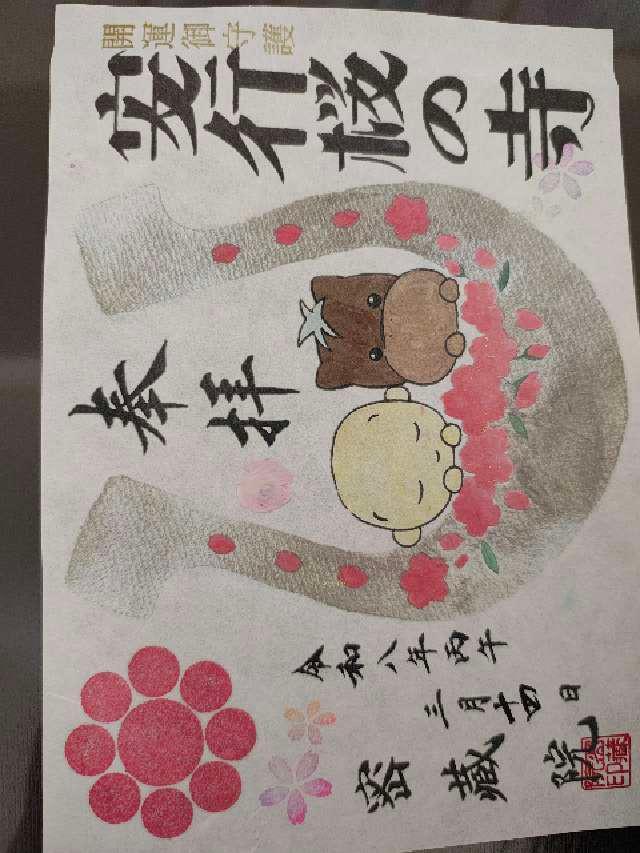 開運御守護
安行桜の寺
奉拝
令和八年丙午
三月十四日
密蔵院